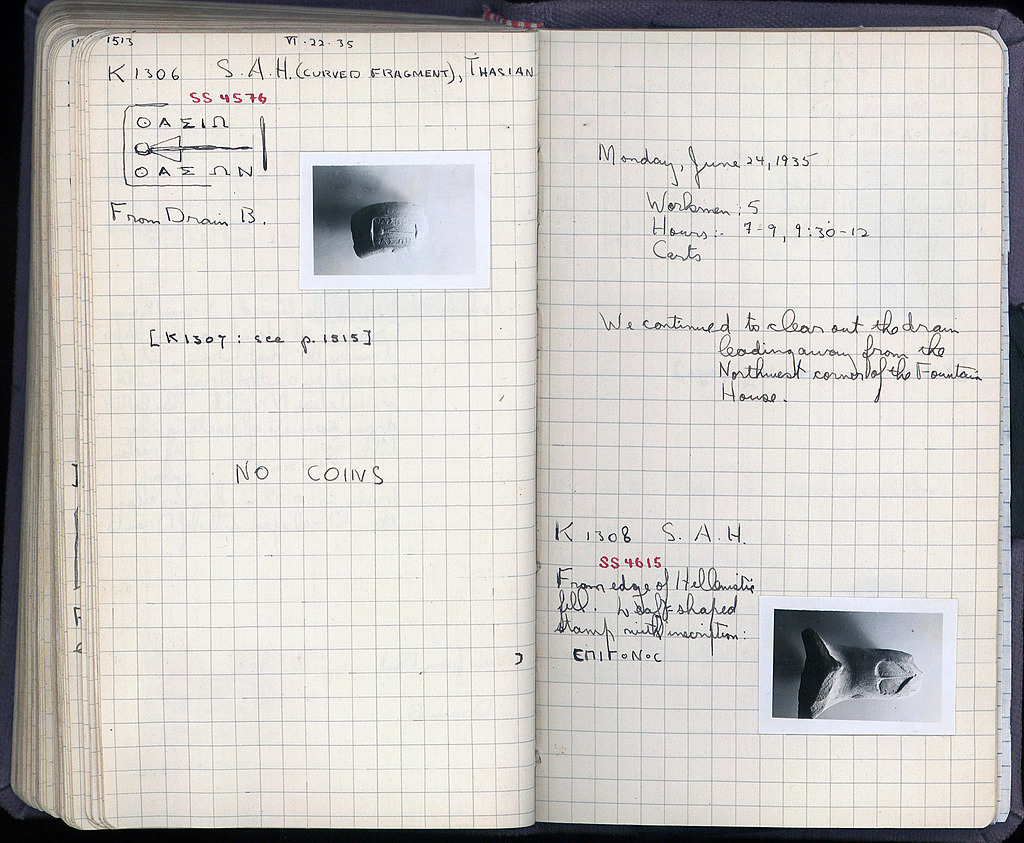 1513
VI · 22 · 35
K 1306 S. A. H. (CURVED FRAGMENT), THASIAN
SS 4576
ΘΑΣΙΩ
ΘΑΣ ΩΝ
From Drain B.
[K 1307 : see p. 1515]
NO COINS
Monday, June 24, 1935
Workmen: 5
Hours:- 7-9, 9:30-12
Carts
We continued to clear out the drain
leading away from the
Northwest corner of the Fountain
House.
K 1308 S. A. H.
SS 4615
From edge of Hellenistic
fill. Leaf-shaped
stamp with inscription:
ЄΠΙΓΟΝΟC